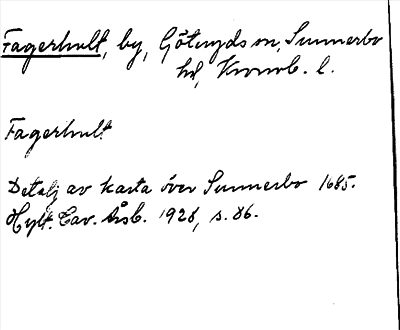 Fagerhult, by, Göteryds sn, Sunnerbo
hd, Kronob. l.
Fagerhult
Detalj av karta över Sunnerbo 1685.
Hylt. Cav. Årsb. 1928, s. 86.